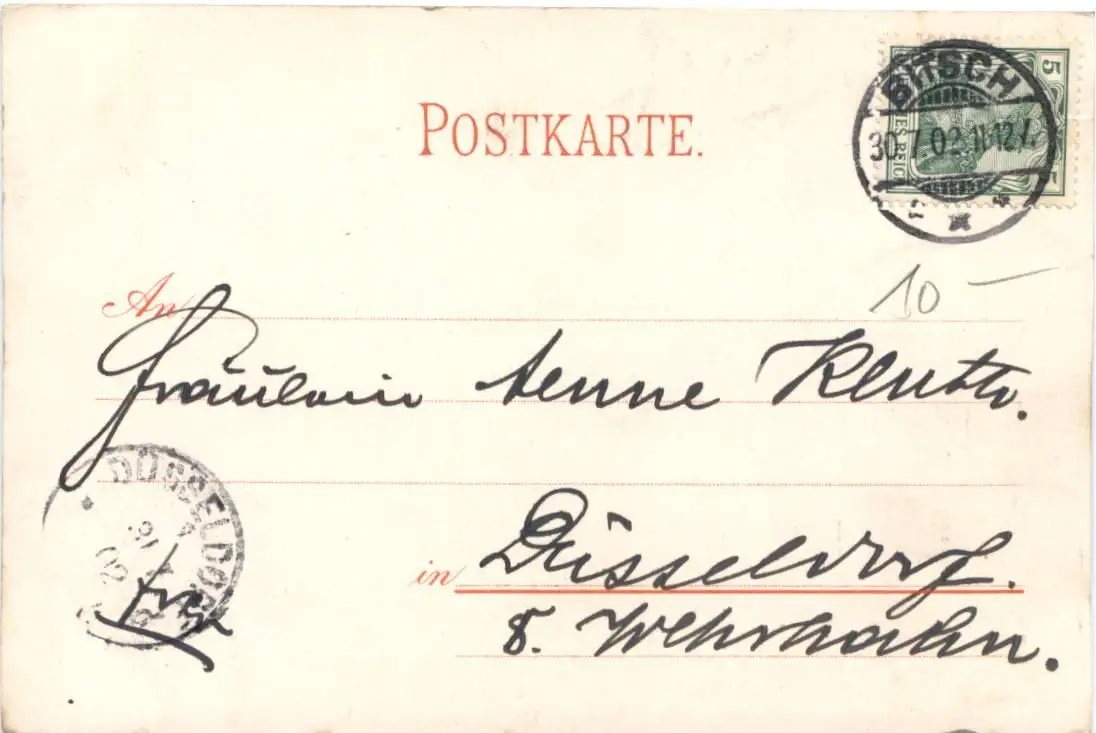 POSTKARTE.
5
BITSCH
30.7.02.11-12V.
ES REICH
10 —
An
Fräulein Aenne
in Düsseldorf.
8. Wehrhahn.
DÜSSELDORF